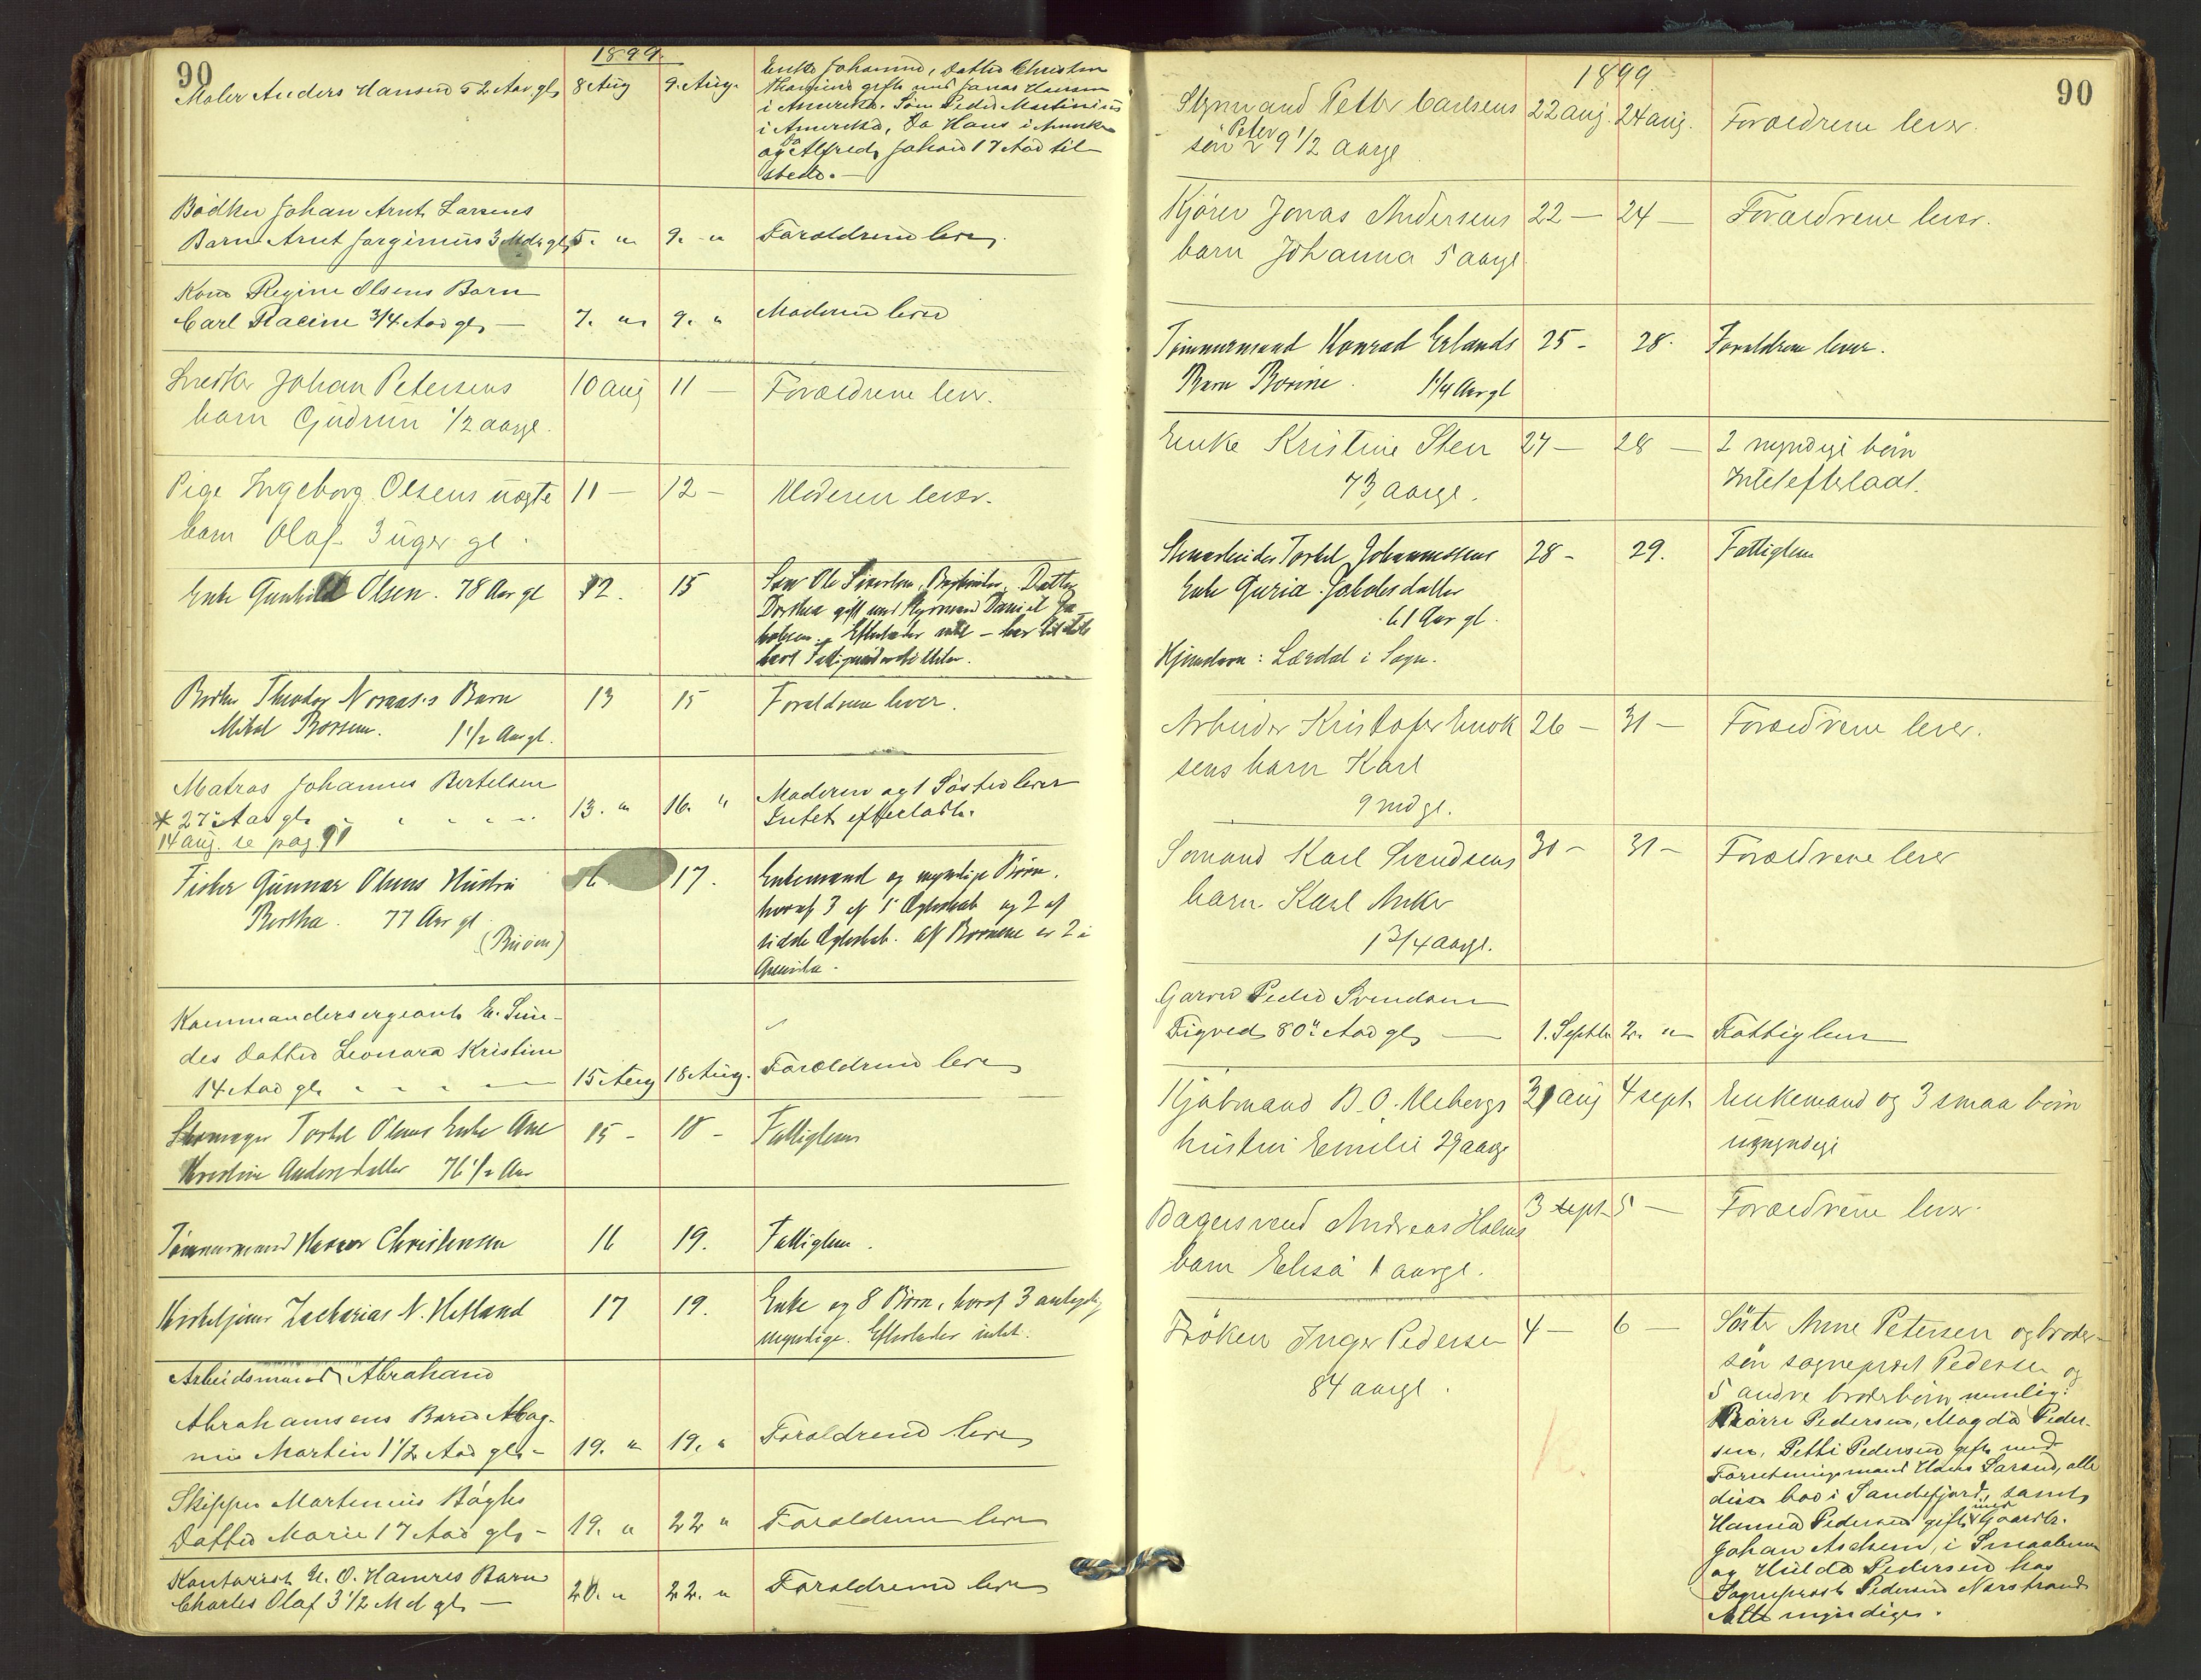 90
1899.
Maler Anders Hansen 52 Aar gl. 8 Aug 9. Aug. Enke Johanne, Datter Christen
gift med Jonas Hansen
i Amerika. Søn Peder Martinius
i Amerika, Do Hans i
og Do Alfred Johan 17 Aar til
stede.
Bødker Johan Arnt Larsens
Barn Arnt Jørginius 3 Mdr gl. 5. " 9. " Forældrene leve
Kone Regine Olsens Barn
Carl 3/4 Aar gl. 7. " 9. " Moderen lever
Snedker Johan Petersens 10 aug 11 — Forældrene lever.
barn Gudrun 1/2 aargl.
Pige Ingeborg Olsens uægte 11 — 12 — Moderen lever.
barn Olaf 3 uger gl.
Enke Gunhild Olsen. 78 Aar gl 12. 15 Søn Ole Sivertsen, Datter
Dorthea gift med Styrmand Daniel Ja-
kobsen. Efterlader intet — har
havt Fattigunderstøttelse.
Theodor Barn 13 15 Forældrene lever.
1 1/2 Aar gl.
Matros Johannes Bertelsen
* 27 Aar gl. 13. " 16. " Moderen og 1 Søster lever
Intet efterladt.
14 aug. se pag. 91
Fisker Gunnar Olsens Hustru 16. 17. Enkemand og myndige Børn,
Bertha. 77 Aar gl hvoraf 3 af 1 Ægteskab og 2 af
(Buøen) sidste Ægteskab. Af Børnene er 2 i
Amerika.
Kommandersergeant E.
des Datter Leonora Kristine
14 Aar gl. 15 Aug 18 Aug. Forældrene leve
Skomager Torkel Olsens Enke Ane 15 - 18 - Fattiglem
Kristine Andersdatter 76 1/2 Aar
Tømmermand Christensen 16 19. Fattiglem.
Kirketjener Zacharias N. Hetland 17 19. Enke og 8 Børn, hvoraf 3
myndige. Efterlader intet.
Arbeidsmand Abraham
Abrahamsens Barn Mag-
nus Martin 1 1/2 Aar gl. 19. " 19. " Forældrene leve
Skipper Martinius Bøghs
Datter Marie 17 Aar gl. 19. " 22 " Forældrene leve
Kontorist N. O. Hamres Barn
Charles Olaf 3 1/2 Md gl. 20. " 22. " Forældrene leve
90
1899
Styrmand Petter Carlsens 22 aug. 24 aug. Forældrene lever.
søn Peter 9 1/2 aargl
Kjører Jonas Andersens 22 — 24 — Forældrene lever.
barn Johanna 5 aargl
Tømmermand Konrad Erlands 25 - 28. Forældrene lever.
Barn Borine. 1 1/4 Aar gl
Enke Kristine Sten 27 — 28 — 2 myndige børn
73 aargl. Intet efterladt.
Stenarbeider Torkel Johannessens 28 - 29. Fattiglem
Enke Guria Jakobsdatter
61 Aar gl.
Hjemstavn: Lærdal i Sogn.
Arbeider Kristofer Enok 26 — 31 — Forældrene lever.
sens barn Karl
9 md gl.
Sømand Karl Svendsens 30 - 31 - Forældrene lever
barn Karl Anker
1 3/4 aargl.
Garver Peder Svendsen
Tigved 80 Aar gl. 1. Septbr 2. " Fattiglem
Kjøbmand B. O. Mebergs 31 aug 4 sept. Enkemand og 3 smaa børn
hustru Emilie 29 aargl umyndige
Bagersvend Andreas Holms 3 sept 5 — Forældrene lever.
barn Elisa 1 aargl.
Frøken Inger Pedersen 4 — 6 — Søster Anne Petersen og broder-
84 aargl. søn sogneprest Pedersen og
5 andre broderbørn nemlig:
Børre Pedersen, Magda Peder-
sen, Petti Pedersen gift med
Forretningsmand Hans Larsen, alle
disse bor i Sandefjord, samt
Hanna Pedersen gift med Gaardbr.
Johan i Smaalenene
og Hulda Pedersen hos
Sogneprest Pedersen Nærstrand
Alle myndige.